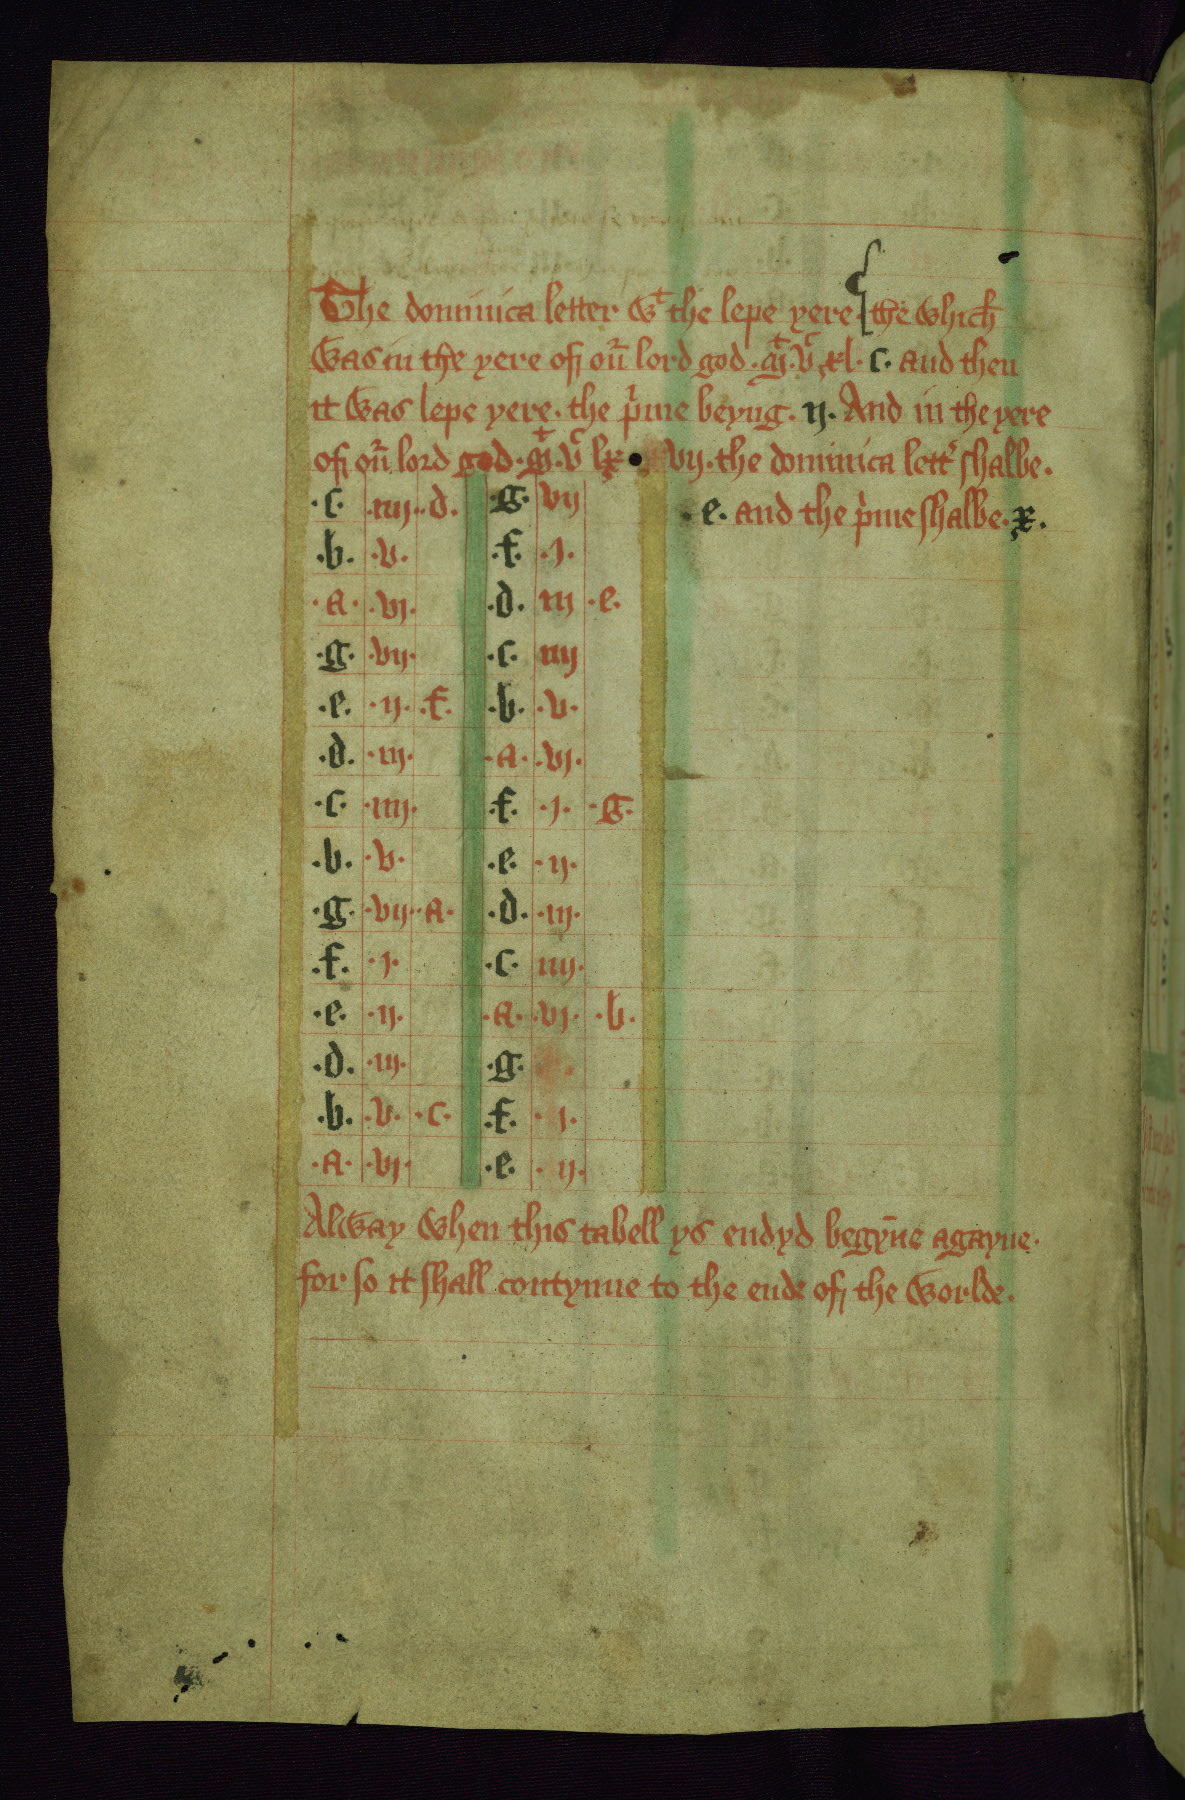 The dominica letter wt the lepe yere. the which
was in the yere of our lord god .mt.vc.xl. c. and then
it was lepe yere. the prime beyng. ij. And in the yere
of our lord god. mt.vc lx vij. the dominica lettr shalbe.
.e. and the prime shalbe. x.
.c. .iiij. .d. .g. vij
.b. .v. .f. .j.
.a. .vj. .d. iij .e.
.g. .vij. .c. iiij
.e. .ij. .f. .b. .v.
.d. .iij. .a. .vj.
.c. .iiij. .f. .j. .g.
.b. .v. .e. .ij.
.g. .vij. .a. .d. .iij.
.f. .j. .c. iiij.
.e. .ij. .a. .vj. .b.
.d. .iij. .g.
.b. .v. .c. .f. .j.
.a. .vj. .e. .ij.
Alway when this tabell ys endyd begyne agayne.
for so it shall contynue to the ende of the worlde.